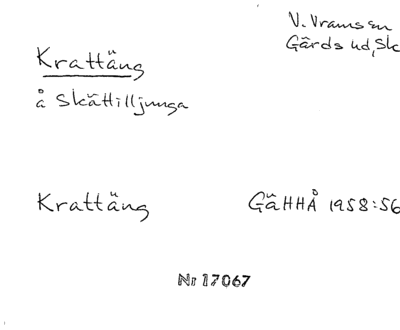 V. Vramsen
Gärds hd, Sk
Krattäng
å Skättilljunga
Krattäng
GäHHÅ 1958:56
Nr 17067